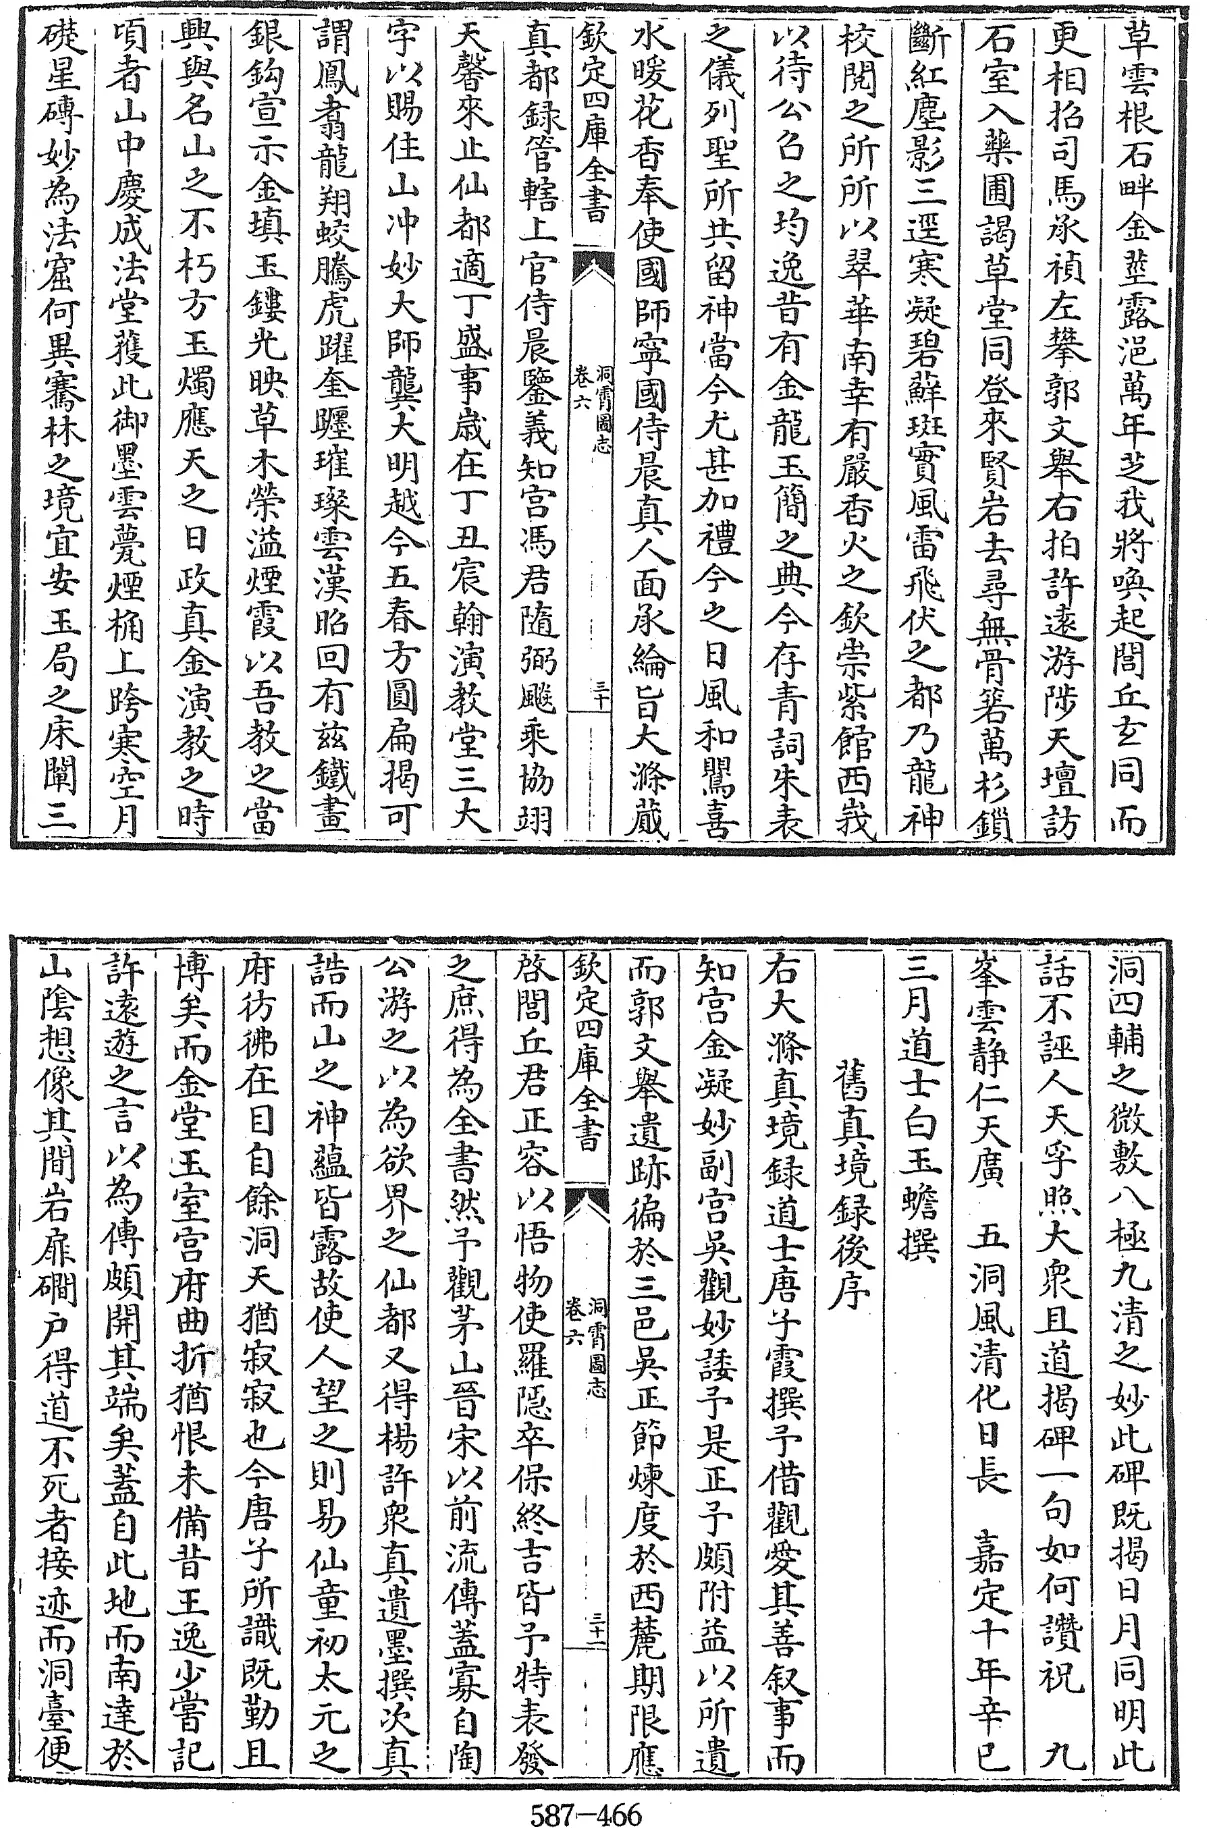 草雲根石畔金莖露浥萬年芝我將喚起閭丘玄同而
更相招司馬承禎左攀郭文舉右拍許遠游陟天壇訪
石室入藥圃謁草堂同登來賢岩去尋無骨箬萬杉鎖
斷紅塵影三逕寒凝碧蘚斑實風雷飛伏之都乃龍神
校閱之所所以翠華南幸有嚴香火之欽崇紫館西峩
以待公召之均逸昔有金龍玉簡之典今存青詞朱表
之儀列聖所共留神當今尤甚加禮今之日風和鸎喜
水暖花香奉使國師寧國侍晨真人面承綸旨大滌蕆
欽定四庫全書
洞霄圖志
卷六
三十
真都録管轄上官侍晨鑒義知宮馮君隨弼颷乘協翊
天馨來止仙都適丁盛事歲在丁丑宸翰演教堂三大
字以賜住山沖妙大師龔大明越今五春方圓扁揭可
謂鳳翥龍翔蛟騰虎躍奎躔璀璨雲漢昭回有兹鐵畫
銀鈎宣示金填玉鏤光映草木榮溢煙霞以吾教之當
興與名山之不朽方玉燭應天之日政真金演教之時
頃者山中慶成法堂蒦此御墨雲甍煙桷上跨寒空月
礎星磚妙為法窟何異騫林之境宜安玉局之床闡三
洞四輔之微敷八極九清之妙此碑既揭日月同明此
話不誣人天孚照大衆且道揭碑一句如何讚祝　九
峯雲静仁天廣　五洞風清化日長　嘉定十年辛巳
三月道士白玉蟾撰
舊真境録後序
右大滌真境録道士唐子霞撰予借觀愛其善叙事而
知宮金凝妙副宮吳觀妙諉予是正予頗附益以所遺
而郭文舉遺跡徧於三邑吳正節煉度於西麓期限應
欽定四庫全書
洞霄圖志
卷六
三十一
啓閭丘君正容以悟物使羅隱卒保終吉皆予特表發
之庶得為全書然予觀茅山晉宋以前流傳蓋寡自陶
公游之以為欲界之仙都又得楊許衆真遺墨撰次真
誥而山之神蘊皆露故使人望之則易仙童初太元之
府彷彿在目自餘洞天猶寂寂也今唐子所識既勤且
博矣而金堂玉室宮府曲折猶恨未備昔王逸少嘗記
許遠遊之言以為傳頗開其端矣蓋自此地而南達於
山陰想像其間岩扉磵户得道不死者接迹而洞臺便
587-466